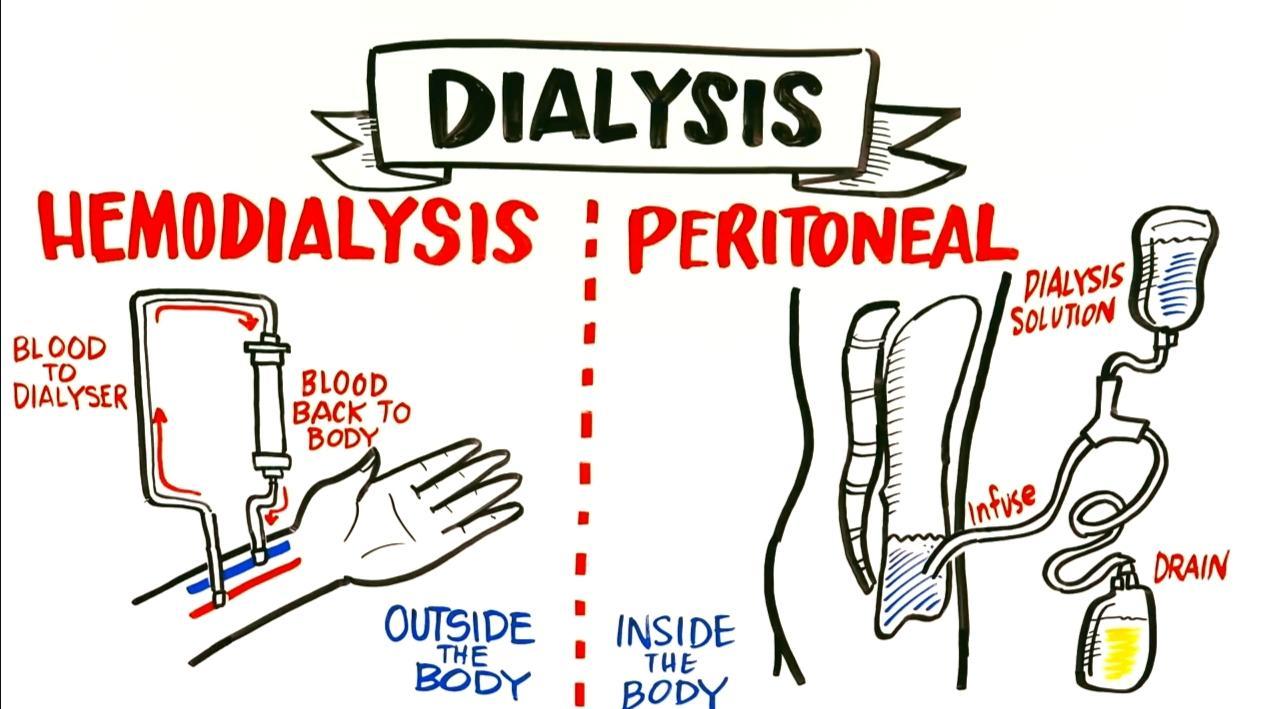 DIALYSIS
HEMODIALYSIS
BLOOD
TO
DIALYSER
BLOOD
BACK TO
BODY
OUTSIDE
THE
BODY
PERITONEAL
DIALYSIS
SOLUTION
Infuse
DRAIN
INSIDE
THE
BODY